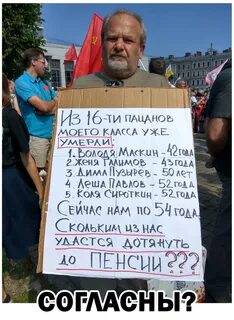 Из 16-ти пацанов
моего класса уже
умерли:
1. Володя Маскин - 42 года
2. Женя Галимов - 43 года
3. Дима Пузырев - 50 лет
4. Леша Павлов - 52 года
5. Коля Сироткин - 52 года
Сейчас нам по 54 года.
Скольким из нас
удастся дотянуть
до пенсии???
СОГЛАСНЫ?